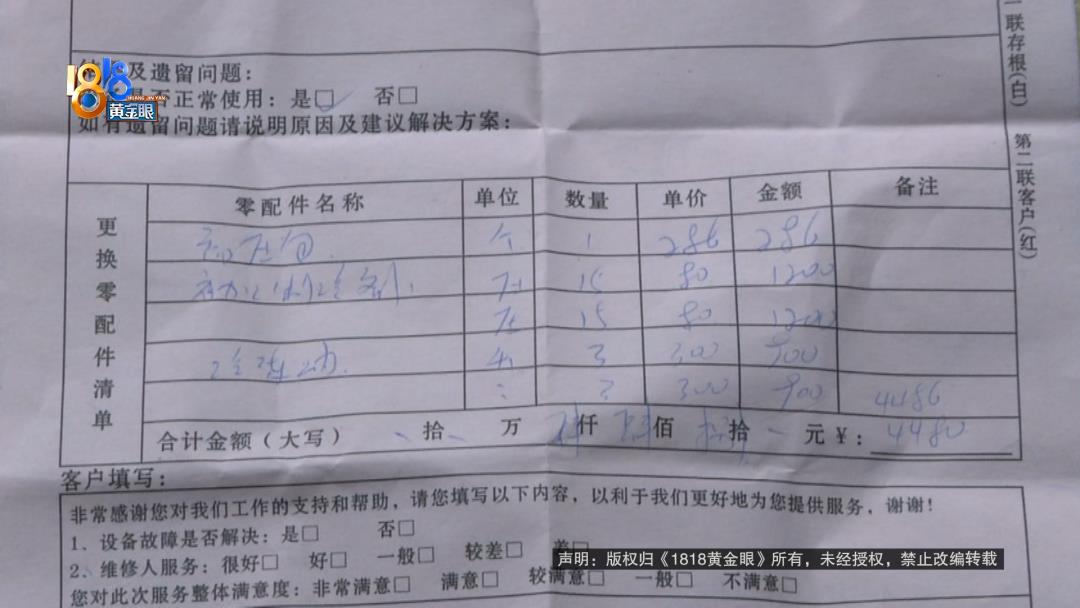 1818
HUANG JIN YAN
黄金眼
及遗留问题：
否正常使用：是□ 否□
如有遗留问题请说明原因及建议解决方案：
一联存根(白)
第二联客户(红)
更换零配件清单
零配件名称 单位 数量 单价 金额 备注
个 1 286 286
15 80 1200
15 80 1200
3 300 900
3 300 900 4486
合计金额（大写） 拾 万 仟 佰 拾 元￥： 4480
客户填写：
非常感谢您对我们工作的支持和帮助，请您填写以下内容，以利于我们更好地为您提供服务，谢谢！
1、设备故障是否解决：是□ 否□
2、维修人服务：很好□ 好□ 一般□ 较差□ 差□
您对此次服务整体满意度：非常满意□ 满意□ 较满意□ 一般□ 不满意□
声明：版权归《1818黄金眼》所有，未经授权，禁止改编转载